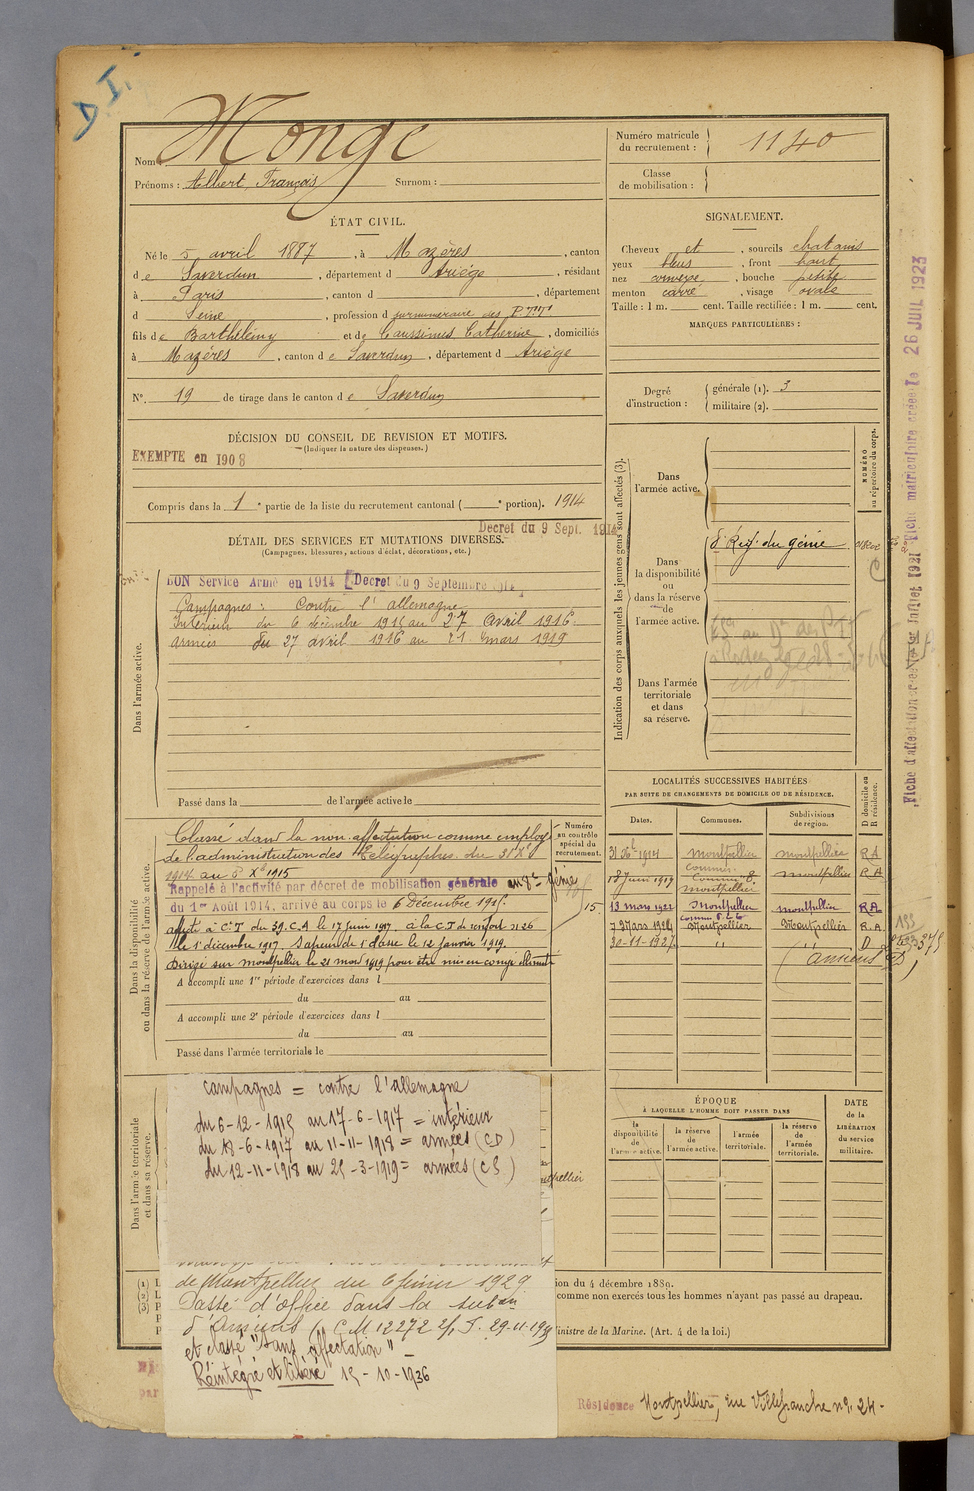 D I.
Nom : Monge
Prénoms : Albert, François Surnom :
Numéro matricule du recrutement : 1140
Classe de mobilisation :
ÉTAT CIVIL.
Né le 5 avril 1887, à Mazères, canton
de Saverdun, département d Ariège, résidant
à Paris, canton d , département
d Seine, profession d surnuméraire des P.T.T.
fils de Barthélémy et de Caussinus Catherine, domiciliés
à Mazères, canton de Saverdun, département d Ariège
N° 19 de tirage dans le canton de Saverdun
SIGNALEMENT.
Cheveux et , sourcils chatains
yeux bleus , front haut
nez convexe , bouche petite
menton carré , visage ovale
Taille : 1 m. cent. Taille rectifiée : 1 m. cent.
MARQUES PARTICULIÈRES :
Degré d'instruction : générale (1). 3
militaire (2).
DÉCISION DU CONSEIL DE REVISION ET MOTIFS.
(Indiquer la nature des dispenses.)
EXEMPTE en 1908
Compris dans la 1e partie de la liste du recrutement cantonal ( e portion). 1914
Decret du 9 Sept. 1914
DÉTAIL DES SERVICES ET MUTATIONS DIVERSES.
(Campagnes, blessures, actions d'éclat, décorations, etc.)
Dans l'armée active.
BON Service Armé en 1914 [Decret du 9 Septembre 1914
Campagnes : Contre l'allemagne
Intérieur du 6 décembre 1915 au 27 avril 1916.
armées du 27 avril 1916 au 21 mars 1919
Passé dans la de l'armée active le
Indication des corps auxquels les jeunes gens sont affectés (3).
NUMÉRO au répertoire du corps.
Dans l'armée active.
Dans la disponibilité ou dans la réserve de l'armée active.
8e Regt du génie
Dans l'armée territoriale et dans sa réserve.
Fiche matriculaire créée le 26 JUIL 1923
LOCALITÉS SUCCESSIVES HABITÉES
PAR SUITE DE CHANGEMENTS DE DOMICILE OU DE RÉSIDENCE.
Dates. Communes. Subdivisions de région. D domicile ou R résidence.
31 Xbre 1914 Montpellier Montpellier R A
18 Juin 1919 Montpellier Montpellier R A
13 mars 1922 Montpellier Montpellier R A
7 Mars 1924 Montpellier Montpellier R.A
30-11-1927 " " D
(amiens
Dans la disponibilité ou dans la réserve de l'armée active.
Numéro au contrôle spécial du recrutement.
Classé dans la non affectation comme employé
de l'administration des Télégraphes du 31 Xbre
1914 au 5 Xbre 1915
Rappelé à l'activité par décret de mobilisation générale au 8e génie
du 1er Août 1914, arrivé au corps le 6 décembre 1915.
15
affecté à Cie T du 39. C.A le 17 juin 1917 à la C.T de renfort 21 26
le 1er décembre 1917 Sapeur de 1e classe le 12 janvier 1919.
Dirigé sur montpellier le 21 mars 1919 pour être mis en congé illimité
A accompli une 1re période d'exercices dans l
du au
A accompli une 2e période d'exercices dans l
du au
Passé dans l'armée territoriale le
Dans l'armée territoriale et dans sa réserve.
campagnes = contre l'allemagne
du 6-12-1915 au 17-6-1917 = intérieur
du 18-6-1917 au 11-11-1918 = armées (CD)
du 12-11-1918 au 21-3-1919 = armées (CS)
de Montpellier du 6 février 1929
Passé d'office dans la subdon
d'Amiens (C.M 12272 2/1 T. 29-11-1929
et classé "Sans affectation" –
Réintégré et libéré 15-10-1936
ÉPOQUE
À LAQUELLE L'HOMME DOIT PASSER DANS
la disponibilité de l'armée active.
la réserve de l'armée active.
l'armée territoriale.
la réserve de l'armée territoriale.
DATE de la LIBÉRATION du service militaire.
ion du 4 décembre 1889.
comme non exercés tous les hommes n'ayant pas passé au drapeau.
inistre de la Marine. (Art. 4 de la loi.)
Résidence Montpellier, rue Villefranche n° 24-